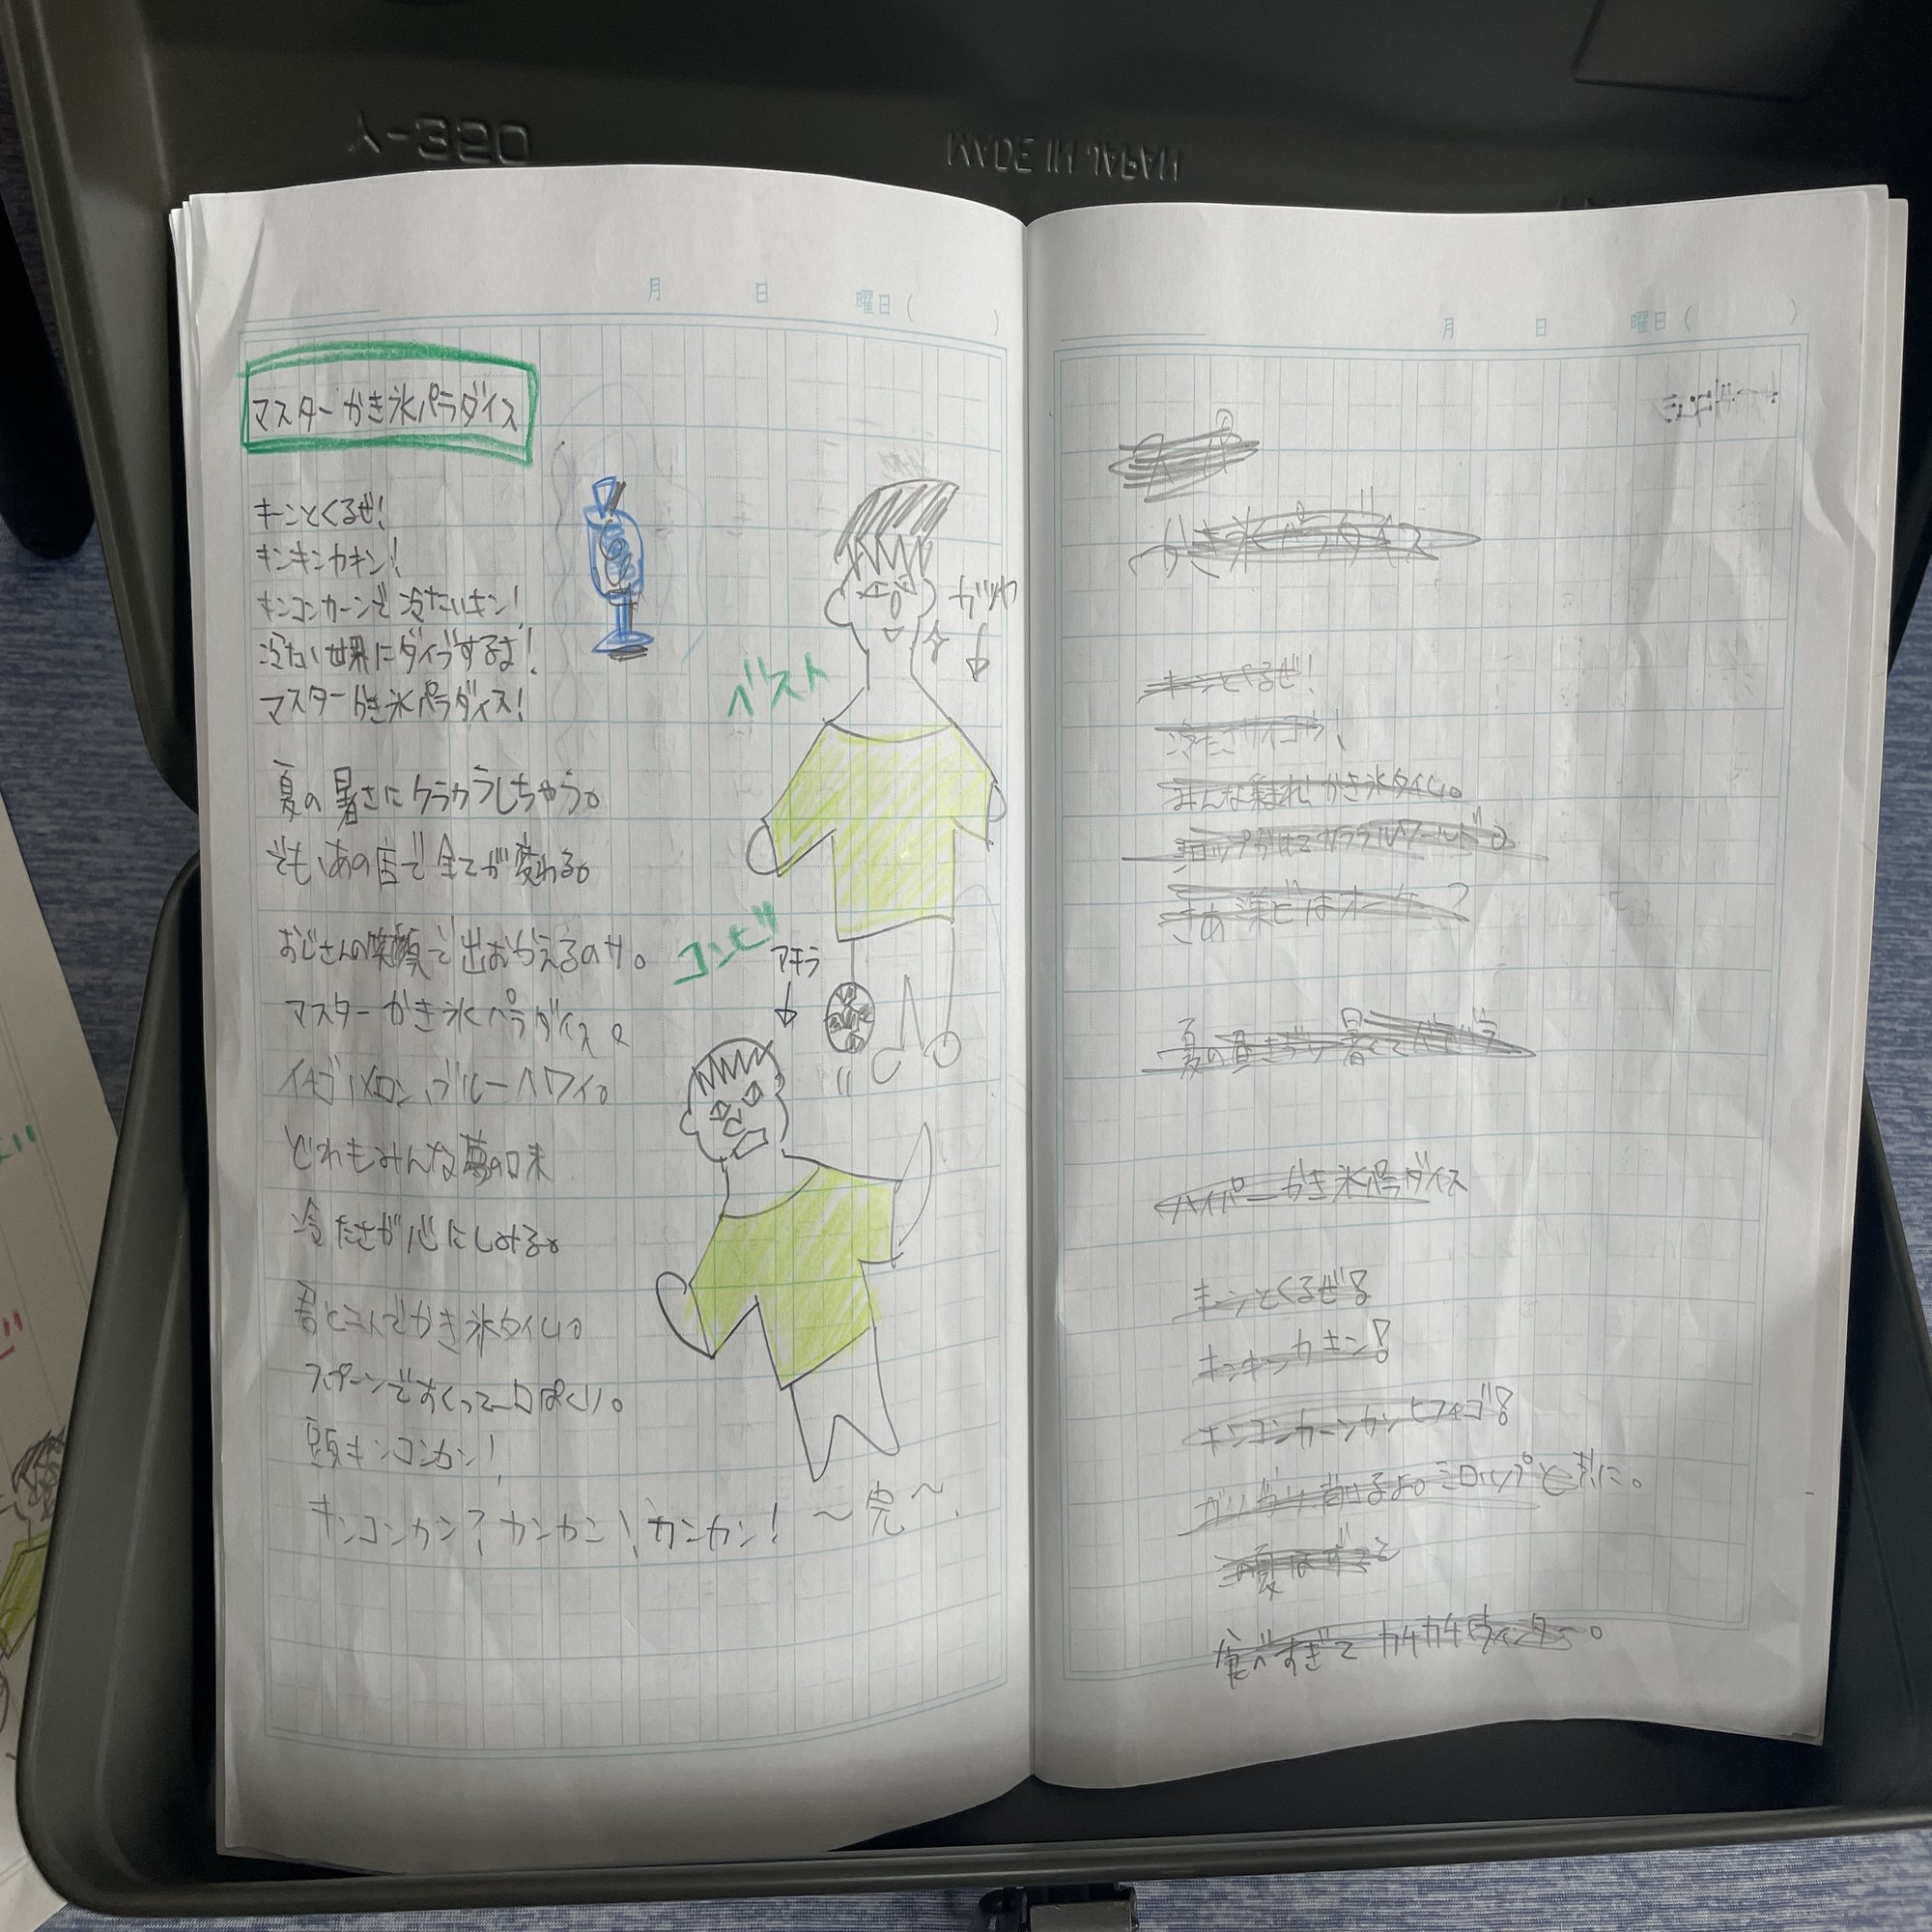 Y-380
MADE IN JAPAN
月 日 曜日( )
マスターかき氷パラダイス
キーンとくるぜ!
キンキンカキン!
キンコンカーンで冷たいキン!
冷たい世界にダイブするよ!
マスターかき氷パラダイス!
夏の暑さにクラクラしちゃう。
でも、あの店で全てが変わる。
おじさんの笑顔で出おかえるのサ。
マスターかき氷パラダイス。
イチゴ、メロン、ブルーハワイ。
どれもみんな夢の味
冷たさが心にしみる。
君と二人でかき氷タイム。
スプーンですくって一口ぱくり。
頭キンコンカン!
キンコンカン?カンカン!カンカン!
〜完〜
ガツヤ
ベスト
コンビ
アキラ
月 日 曜日( )
かき氷パラダイス
キーンとくるぜ!
冷たさサイコウ!
みんな集まれ!かき氷タイム。
夏の
暑くて
ハイパーかき氷パラダイス
キーンとくるぜ!
キンキンカキン!
キンコンカーンカン
この夏はずっと
食べすぎてカチカチウィンター。